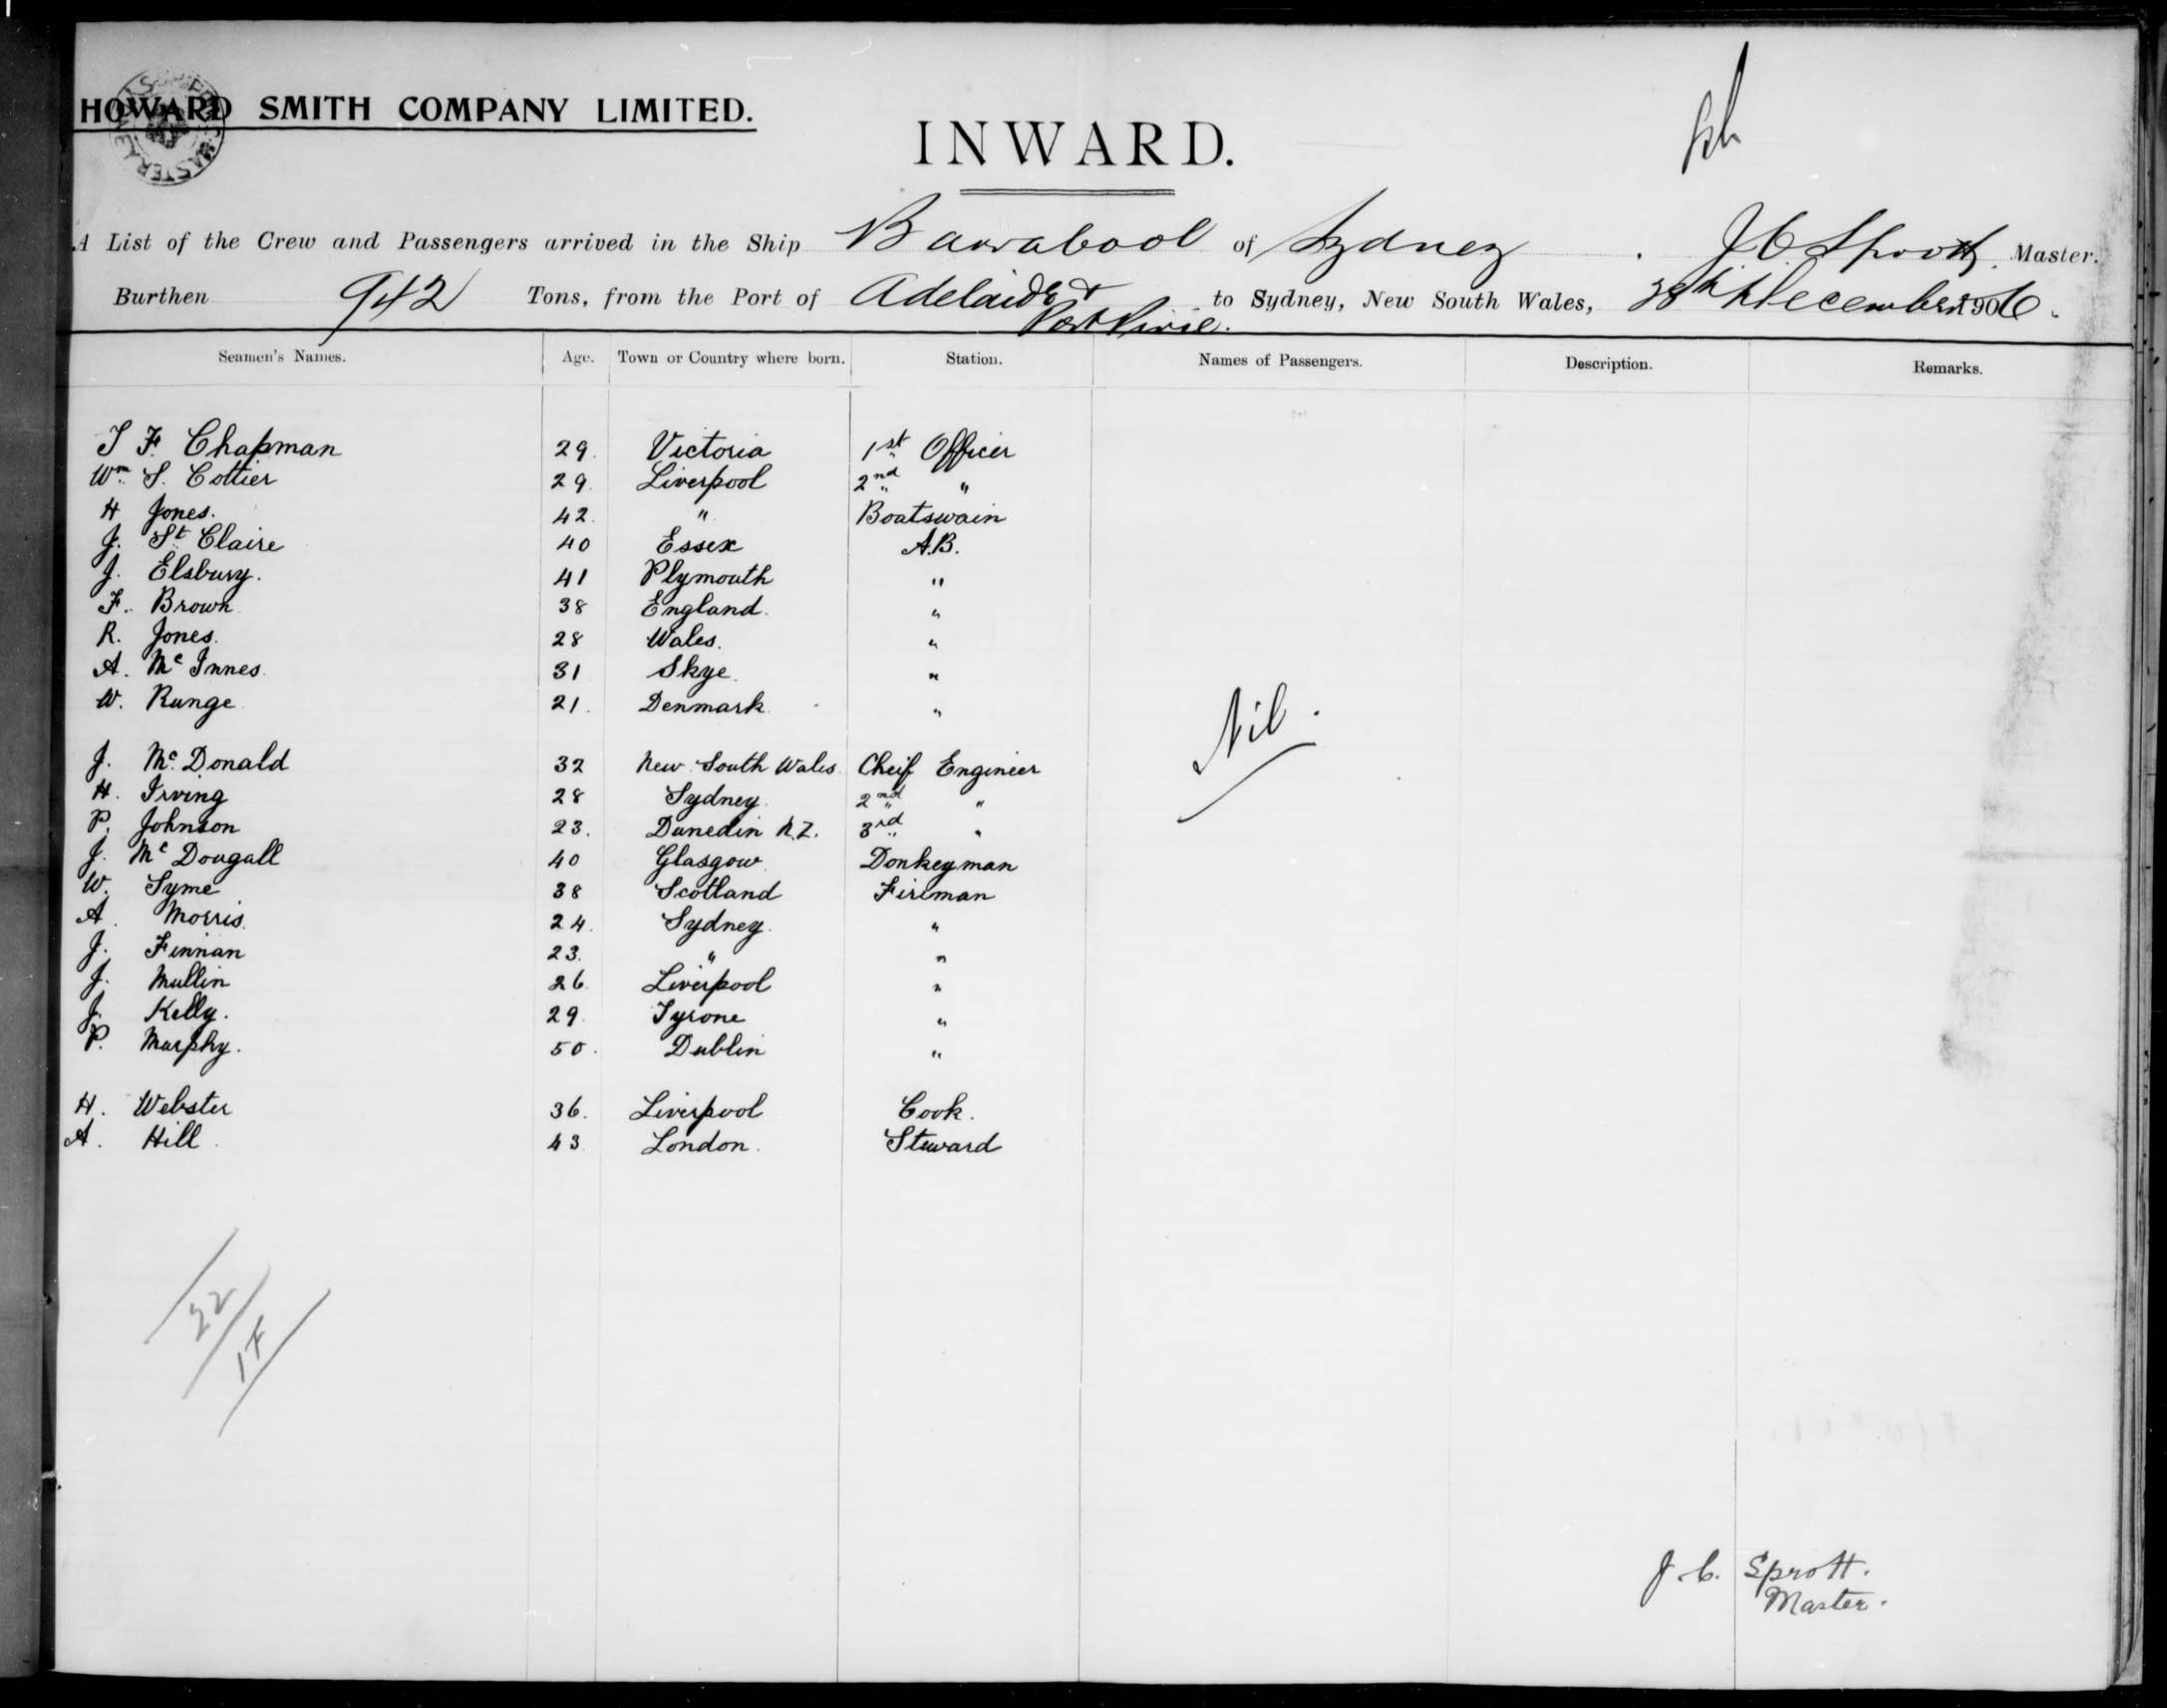 HOWARD SMITH COMPANY LIMITED.
INWARD.
A List of the Crew and Passengers arrived in the Ship Barrabool of Sydney. J C Sprott, Master.
Burthen 942 Tons, from the Port of Adelaide & Port Pirie. to Sydney, New South Wales, 28th December 1906.
Seamen's Names. Age. Town or Country where born. Station. Names of Passengers. Description. Remarks.
J F. Chapman 29. Victoria 1st Officer
Wm. S. Cottier 29. Liverpool 2nd "
H Jones. 42. " Boatswain
J. St Claire 40 Essex A.B.
J. Elsbury. 41 Plymouth "
F. Brown 38 England. "
R. Jones. 28 Wales. "
A. Mc Innes. 31 Skye. "
W. Runge 21. Denmark "
Nil.
J. Mc Donald 32 New South Wales Cheif Engineer
H. Irving 28 Sydney. 2nd "
P. Johnson 23. Dunedin N.Z. 3rd "
J. Mc Dougall 40 Glasgow Donkeyman
W. Syme 38 Scotland Fireman
A. Morris. 24. Sydney. "
J. Finnan 23. " "
J. Mullin 26 Liverpool "
J. Kelly. 29. Tyrone "
P. Murphy. 50. Dublin "
H. Webster 36. Liverpool Cook.
A. Hill 43 London. Steward
22
J. C. Sprott.
Master.